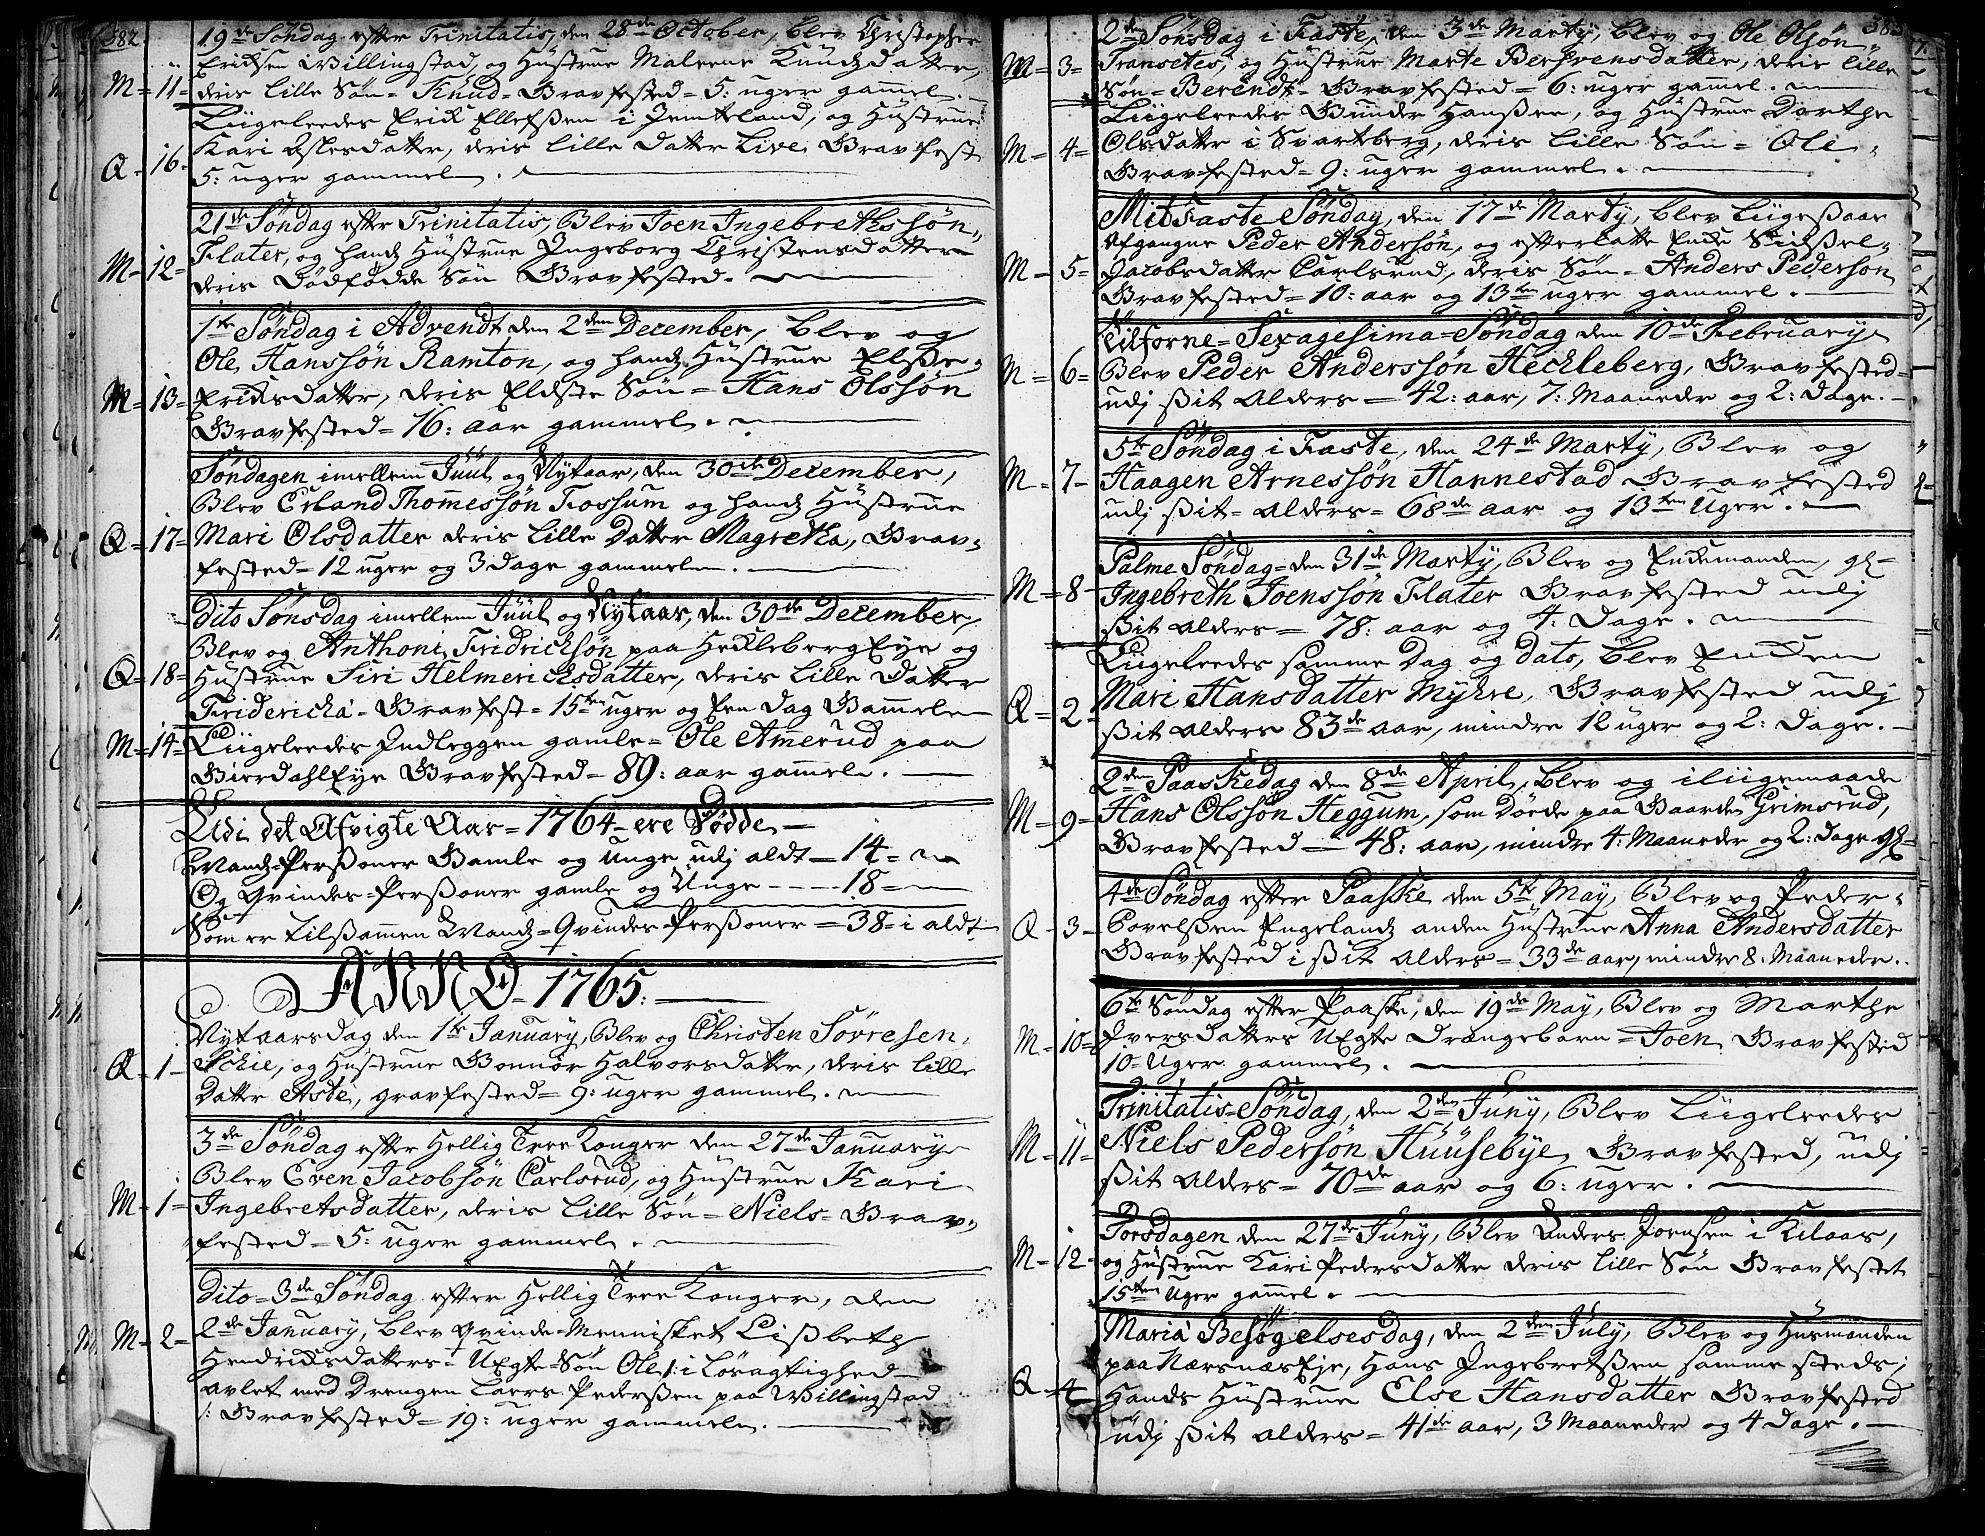 382.
19de Søndag efter Trinitatis, den 28de October, blev Christopher
Erichsen Willingstad, og Hustrue Malene Knudsdatter,
M = 11 = deris lille Søn = Knud = Gravfested = 5: uger gammel.
Liigeleedes Erick Ellefsen i Jemteland, og Hustrue
Kari Aslesdatter, deris lille Datter Live, Gravfest
Q = 16 = 5: uger gammel.
21de Søndag efter Trinitatis, Blev Joen Ingebrethssøn
Flater, og hands Hustrue Ingeborg Christensdatter
M = 12 = deris Dødfødde Søn Gravfested.
1te Søndag i Advendt den 2den December, blev og
Ole Hanssøn Ramton, og hands Hustrue Elsse
M = 13 = Erichsdatter, deris Eldste Søn = Hans Olssøn
Gravfested = 16: aar gammel.
Søndagen imellem Juul og Nytaar, den 30de December,
Blev Erland Thomessøn Fossum og hands Hustrue
Q = 17 = Mari Olsdatter deris lille Datter Magretha, Grav=
fested = 12 uger og 3 Dage gammel.
Dito Sønsdag imellem Juul og Nytaar, den 30de December,
Blev og Anthoni Fridrichsøn paa Heckleberg Eye og
Q = 18 = Hustrue Siri Helmerichsdatter, deris lille Datter
Friderichá = Gravfest = 15ten uger og Een Dag Gammel
M = 14 = Liigeleedes Indleggen gamle = Ole Amerud paa
Bierdahl Eye Gravfested = 89: aar gammel.
Udi det Afvigte Aar = 1764 = ere Dødde
Mands-Personer Gamle og Unge udj aldt = 14 =
Og Qvindes-Personer gamle og Unge - - - - 18 =
Som er tilsammen Mands = Qvindes-Personer = 38 = i aldt
ANNO = 1765:
Nytaarsdag den 1te January, Blev og Christen Sövresen
Q = 1 = Schie, og Hustrue Gonnor Halvorsdatter, deris lille
Datter Aste, gravfested = 9: uger gammel.
3de Søndag efter Hellig Tree Konger den 27de January
Blev Even Jacobsøn Carlsrud, og Hustrue Kari
M = 1 = Ingebretsdatter, deris lille Søn = Niels = Grav=
fested = 5: uger gammel.
Dito = 3de Søndag efter Hellig Tree Konger, den
M = 2 = 2de January, blev Qvinde-Mennisket Lissbeth
Hendrichsdatters Uegte-Søn Ole /: i Løsagtighed
avlet med Drengen Laers Pederssen paa Willingstad
:/ Gravfested = 19: uger gammel.
383
2de Sønsdag i Faste, den 3de Marty, blev og Ole Olsøn
M = 3 = Transetes, og Hustrue Marte Berhrensdatter, deris lille
Søn = Berendt = Gravfested = 6: uger gammel.
Liigeleedes Gunder Hanssen, og Hustrue Dorthe
M = 4 = Olsdatter i Svartberg, deris lille Søn = Ole
Gravfested = 9: uger gammel.
MitFaste Søndag, den 17de Marty, blev Liigessaa
Afgangne Peder Andersøn, og efterlatte Encke Sidssel
M = 5 = Jacobsdatter Carlsrud, deris Søn = Anders Pedersøn
Gravfested = 10: aar og 13ten uger gammel.
Tilforne = Sexagesima = Søndag den 10de February
M = 6 = Blev Peder Anderssøn Heckleberg, Gravfested
udj ssit Alders = 42: aar, 7: Maaneder og 2: Dage.
5te Søndag i Faste, den 24de Marty, Blev og
M = 7 = Haagen Arnessøn Hannestad Gravfested
udj ssit = Alders = 68de aar og 13ten Uger.
Palme Søndag = den 31de Marty, Blev og Enckemanden, gl=
M = 8 = Ingebreth Joenssøn Flater Gravfested udj
ssit Alders = 78: aar og 4: Dage.
Liigeleedes samme Dag og dato, blev Encken
Q = 2 = Mari Hansdatter Myhre, Gravfested udj
ssit Alders 83de aar, mindre 12 uger og 2: Dage.
2den Paaskedag den 8de April, blev og iliigemaade
M = 9 = Hans Olssøn Heggum, som Døede paa Gaarden Grimsrud,
Gravfested = 48: aar, mindre 4: Maaneder og 2: Dage gl=
4de Søndag efter Paasske den 5te May, Blev og Peder
Q = 3 = Povelssen Engelands anden Hustrue Anna Andersdatter
Gravfested i ssit Alders = 33de aar, mindre 8. Maaneder.
6te Søndag efter Paaske, den 19de May, Blev og Marthe
M = 10 = Iversdatters Uegte Drengebarn = Joen Gravfested
10 = Uger gammel.
Trinitatis = Søndag, den 2den Juny, Blev Liigeleedes
M = 11 = Niels Pedersøn Huusebye, Gravfested, udj
ssit Alders = 70de aar og 6: uger.
Torsdagen den 27de Juny, Blev Anders Joensen i Kilaas,
M = 12 = og Hustrue Kari Pedersdatter deris lille Søn Gravfestet
15ten Uger gammel.
Mariá Besøgelsesdag, den 2den July, Blev og Husmanden
paa Nærsnæs Eje, Hans Ingebretssen samme steds,
Q = 4 = Hands Hustrue Else Hansdatter Gravfested
udj ssit Alders = 41de aar, 3 Maaneder og 4 Dage.